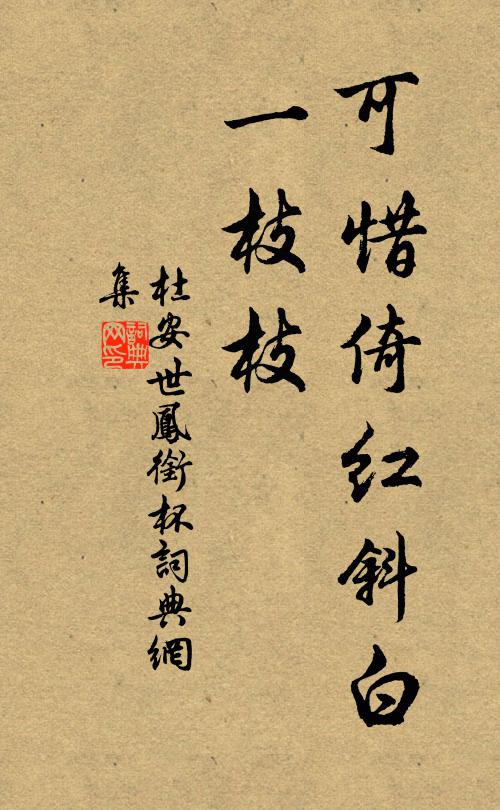 可惜倚红斜白
一枝枝
杜安世鳳銜杯詞典網
集
詞典
网印